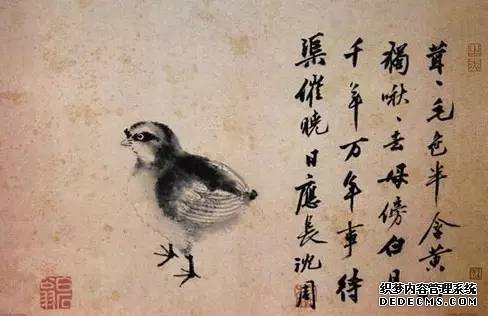 茸〻毛色半含黄
獨啾〻去母傍白日
千年万年事待
渠催晓日應長沈周
织梦内容管理系统
DEDECMS.COM